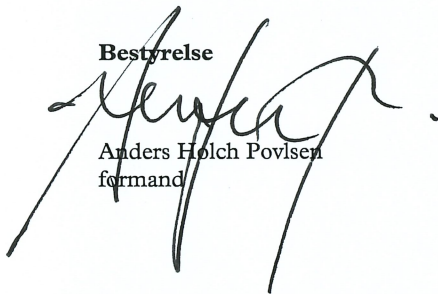 Bestyrelse
Anders Holch Povlsen
formand